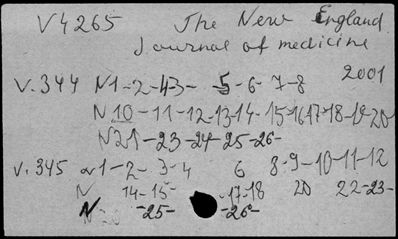 V4265 The New England
Journal of medicine
2001
V.344 N1-2-43- 5-6-7-8
N10-11-12-13-14- 15-1617-18-19-20-
N21-23-24-25-26-
V.345 N1-2-3-4 6 8-9-10-11-12
N 14-15- -17-18 20 22-23-
N -25- -26-